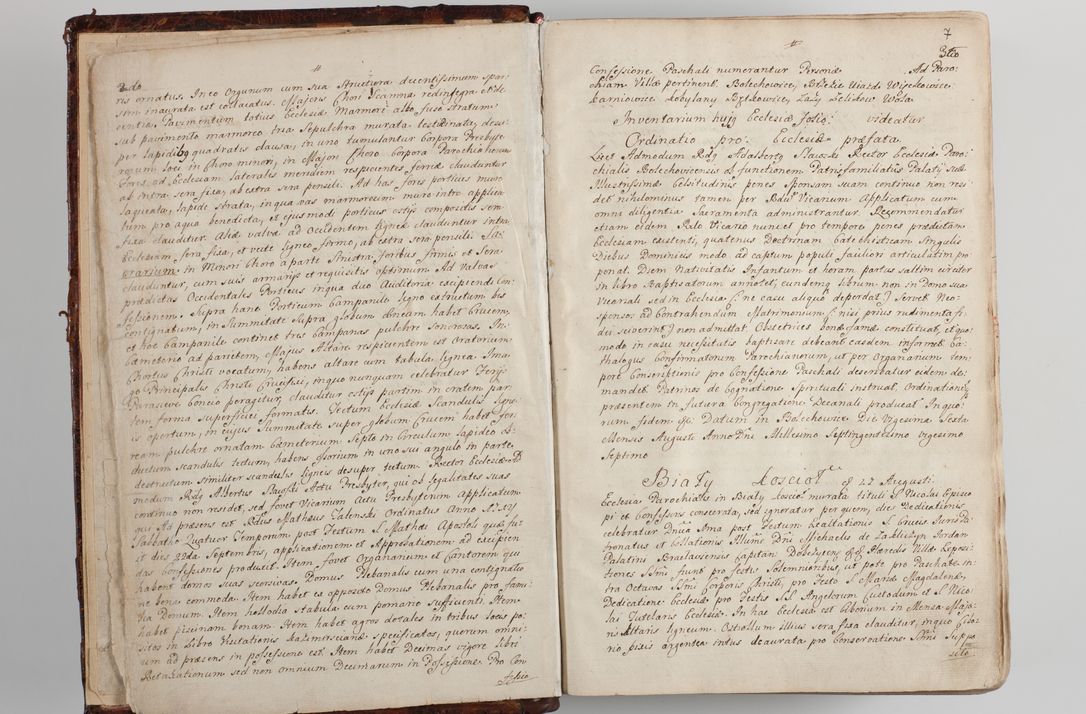 ris ornatus. In eo Organum cum sua Structura decentissimum spar:
sim inaurata est collocatus. Majoris Chori Vicamna redintegra Eccle:
centia. Pavimentum totius Ecclesiæ Marmore albo, fuso stratum
sub pavimento marmoreo tria Sepulchra murata testudinata, desu:
per lapidibus quadratis clausa, in uno tumulantur Corpora Presbyte:
rorum loci in Choro minori, in Majori Choro Corpora Parochianorum.
Fores, ad Ecclesiam lateralis meridiem respicientes ferreæ clauduntur
ab intra sera fixa, ab extra sera pensili. Ad has fores porticus muro
laqueata, lapide strata, in qua vas marmoreum muro intro applica
tum pro aqua benedicta, et ejusmodi porticus ostijs compositis sem:
clauditur. Aliæ valvæ ad Occidentem ligneæ clauduntur intra
Ecclesiam sera fixa, et vecte ligneo firmo, ab extra sera pensili. Sac:
crarium in Minori Choro a parte sinistra, foribus firmis et Sera
clauduntur, cum suis armarijs et requisitis optimum. Ad Valvas
prædictas Occidentales Porticus in qua duo Auditoria excipiendi Con:
fessionem. Supra hanc Porticum Campanile ligno extructum bis
contignatum, in Summitate Supra globum Crucem habet Crucem,
et hoc Campanile continet tres Campanas pulchre Sonorosas. In
Cæmeterio ad parietem, Majus Altare respicientem est Oratorium
Hortus Christi vocatum, habens altare cum tabula lignea Ima:
go Principalis Christi Crucifixi, in quo nunquam celebratur Ferijs
Parasceve Concio peragitur, clauditur ostijs partim in cratem par
tem forma superficiei formatus. Tectum Ecclesiæ Scandulis ligne:
is opertum, in cujus Summitate super globum Crucem habet fer:
ream, pulchre ornatam Cæmeterium Septo in Circulum lapideo ob:
ductum Scandulis tectum, habens Osorium in uno sui angulo in parte
destructum similiter scandulis ligneis desuper tectum. Rector Ecclesiæ Ad
modum Rdus Albertus Slawski Actu Presbyter, qui ob legalitates suas
continuo non residet, sed fovet Vicarium Actu Presbyterum applicatum
qui Ad præsens est Rdus Mathæus Zalenski Ordinatus Anno 1727
Sabbatho Quatuor Temporum post Festum S. Mathæi Apostoli quæ fu:
it dies 22da Septembris, applicationem et Approbationem ad excipien
das Confessiones produxit. Item fovet Organarium et Cantorem qui
habent domos suas seorsivas. Domus Plebanalis cum una contignatio
ne bene commoda. Item habet ex opposito Domus Plebanalis pro fami:
lia Domum. Item hollodia Stabula cum pomario sufficienti. Item
habet piscinam bonam. Item habet agros dotales in tribus locis po:
sitos in Libro Visitationis Kazimirscianæ specificatos, quorum omni:
um ad præsens in possessione est. Item habet Decimas vigore libri
Retaxationum sed non omnium Decimarum in Possessione Pro Con
fessio
7
3tio
Confessione Paschali numerantur Personæ Ad Paro:
chiam Villæ pertinent Bolechovice, Brzezie Uiazd Więckowice:
Karniowice Kobylany Brzkowice, Łazy Zelikow Wola
Inventarium hujus Ecclesiæ folio: videatur
Ordinatio pro Ecclesiæ præfata.
Licet Admodum Rdus Adalbertus Slawski Rector Ecclesiæ Paro:
chialis Bolechovicensis ob functionem Patrisfamiliatus Palatij suæ
Illustrissimæ Celsitudinis penes Sponsam suam continuo non resi
det nihilominus tamen per Rdum Vicarium Applicatum cum
omni diligentia Sacramenta administrantur. Recommendatur
etiam eidem Rdo Vicario nunc et pro tempore penes præfatam
Ecclesiam existenti, quatenus Doctrinam Catechisticam Singulis
Diebus Dominicis modo ad captum populi faciliori articulatim pro
ponat. Diem Nativitatis Infantum et horam partus saltim circiter
in libro Baptisatorum annotet, eundemque librum non in Domo sua
Vicariali sed in Ecclesia (: ne casu aliquo deperdat :) Servet Neo:
sponsos ad Contrahendum Matrimonium (: nisi prius rudimenta fi:
dei sciverint :) non admittat. Obstetrices bonæ famæ constituat, et quo:
modo in casu necessitatis baptisare debeant easdem informet. Ca:
thalogus Confirmatorum Parochianorum, ut per Organarium tem
pore Conscriptionis pro Confessione Paschali describatur eidem de:
mandet. Patrinos de Cognatione Spirituali instruat, Ordinationem
præsentem in futura Congregatione Decanali producat. In quo:
rum fidem &c. Datum in Bolechowice Die Vigesima Sexta
Mensis Augusti Anno Dni Millesimo Septingentesimo vigesimo
Septimo
Biały Kosciołᵃ 27 Augusti
Ecclesia Parochialis in Biały Kosciol murata tituli S. Nicolai Episco
pi et Confessoris consecrata, sed ignoratur per quem, dies Dedicationis
celebratur Dnica Ima post Festum Exaltationis S. Crucis Juris Pa
tronatus et Collationis Illmi Dni Michaelis de Zakliczyn Jordan
Palatini Braclaviensis Capitan Dobczycens &c &c. Hæredis Villæ Exposi:
tiones SSmi fiunt pro festis Solemnioribus, ut pote pro Paschate in:
tra Octavas SSmi Corporis Christi, pro Festo S. Mariæ Magdalenæ,
Dedicatione Ecclesiæ pro Festis S.S. Angelorum Custodum et S. Nico
lai Tutelaris Ecclesiæ. In hac Ecclesia est Ciborium in Mensa Majo
ris Altaris ligneum. Ostiollum illius sera fixa clauditur, in quo Cibo:
rio pixis argentea intus deaurata pro Conservatione SSmi Suppo
sito